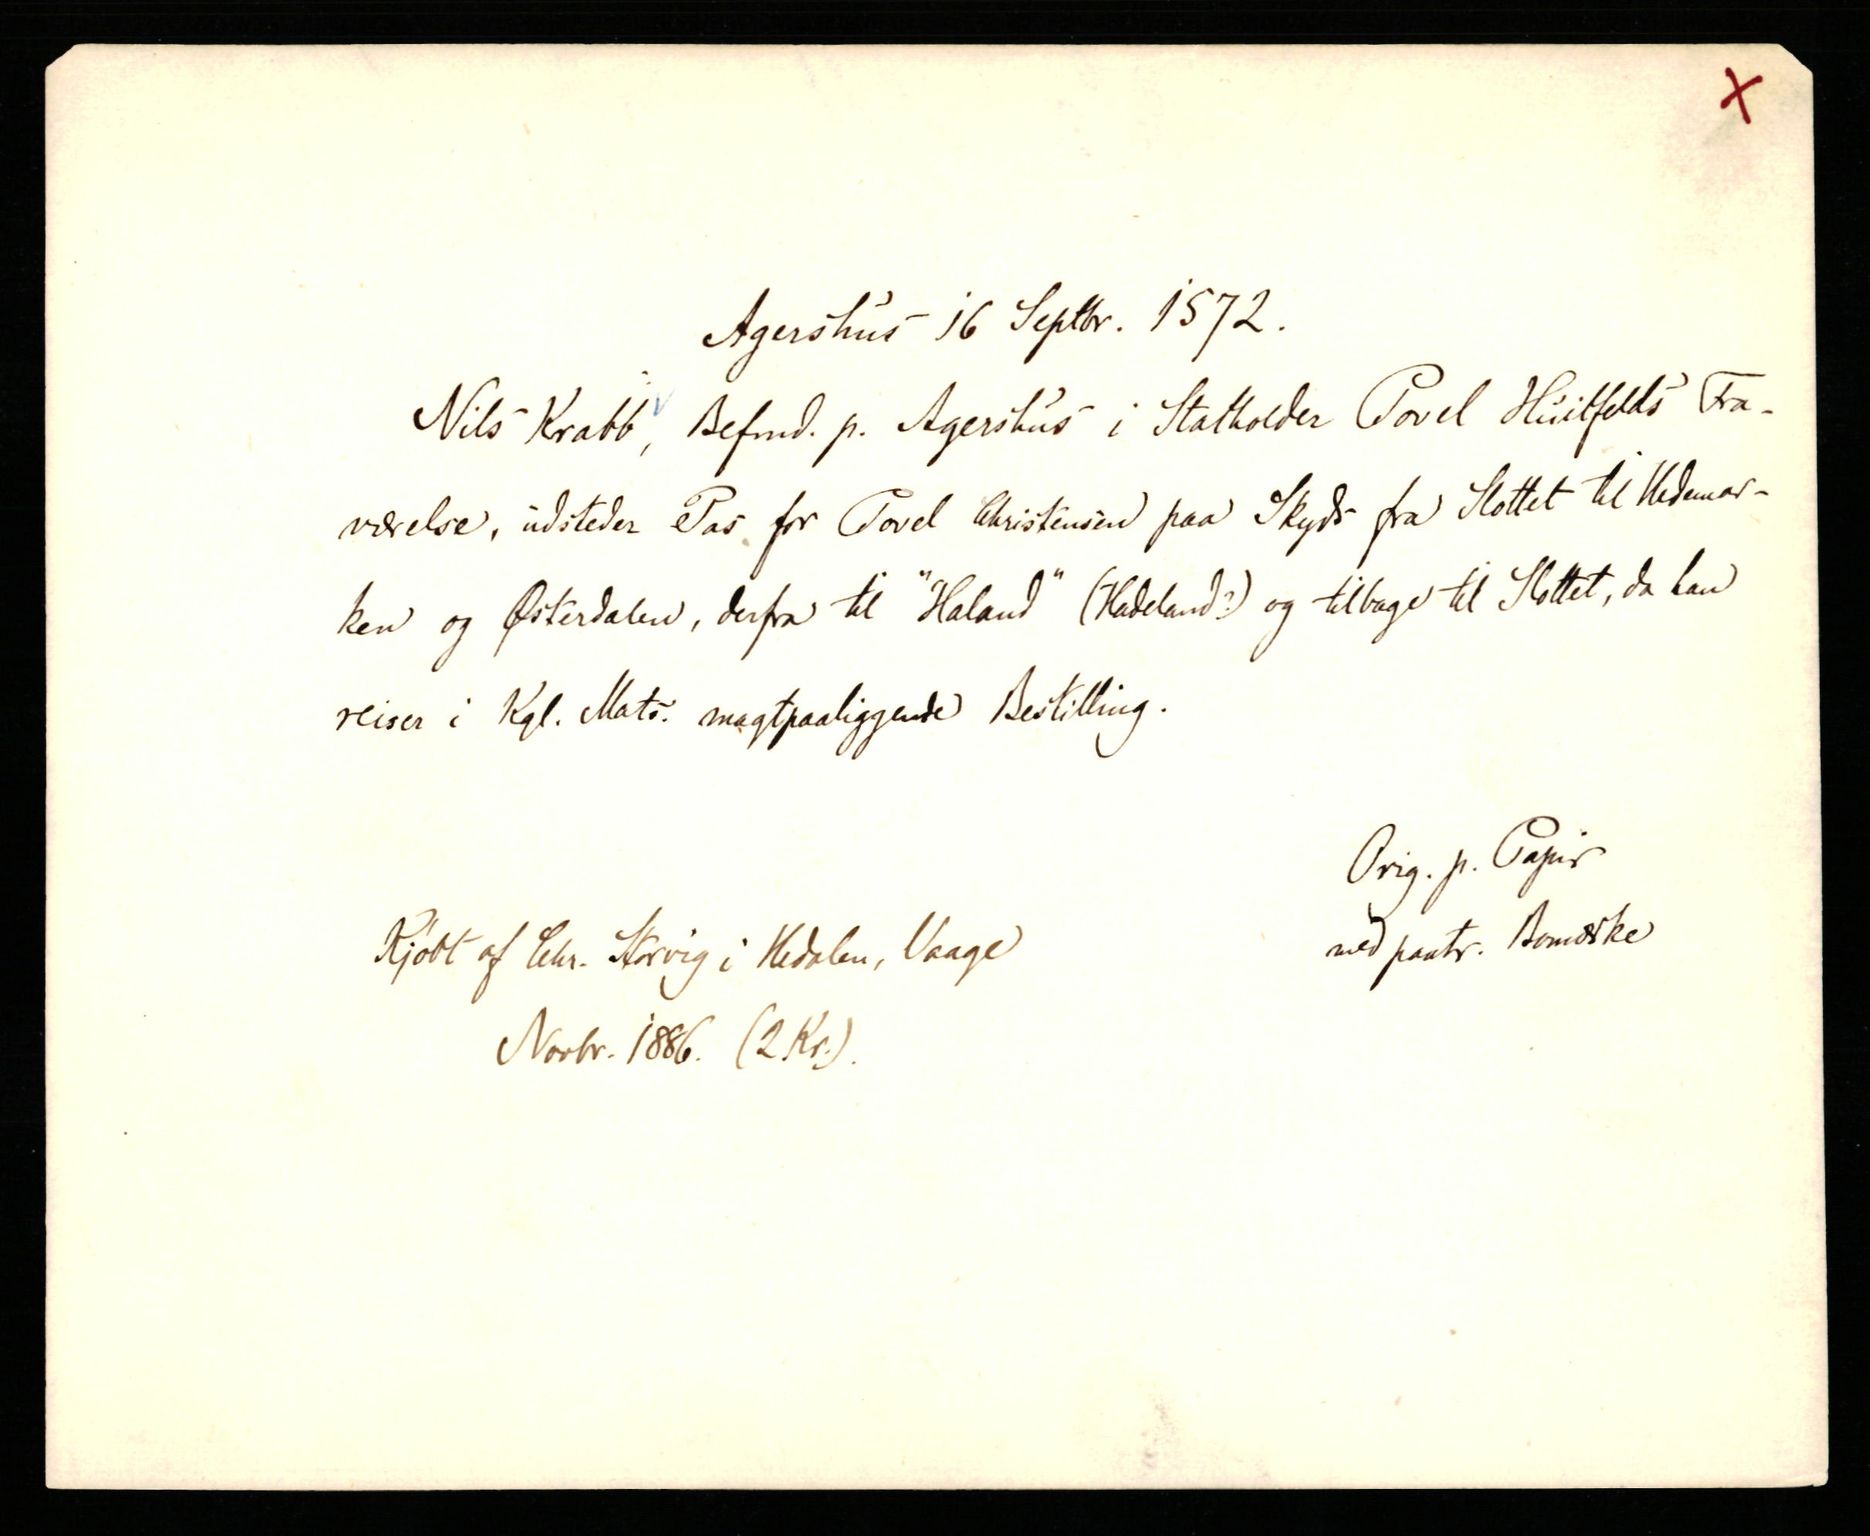 X
Agershus 16 Septbr. 1572.
Nils Krabb, Befmd. p. Agershus i Statholder Povel Huitfelds Fra-
værelse, udsteder Pas for Povel Christensen paa Skyds fra Slottet til Hedemar-
ken og Østerdalen, derfra til "Haland" (Hadeland?) og tilbage til Slottet, da han
reiser i Kgl. Mats. magtpaaliggende Bestilling.
Orig. p. Papir
med paatr. Bomærke
Kjøbt af Chr. Storvig i Hedalen, Vaage
Novbr. 1886. (2 Kr.).